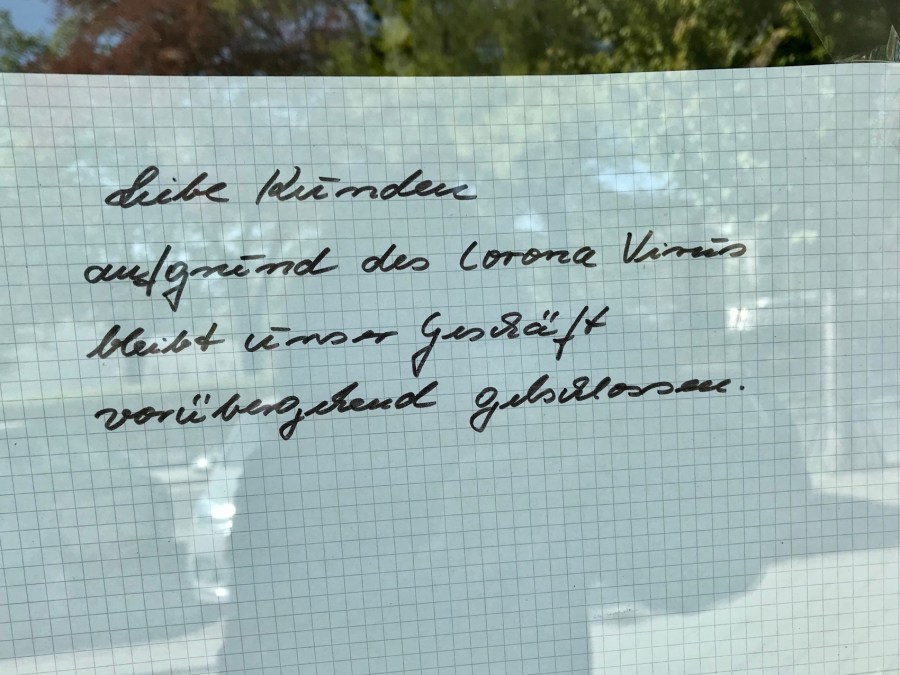 Liebe Kunden
aufgrund des Corona Virus
bleibt unser Geschäft
vorübergehend geschlossen.